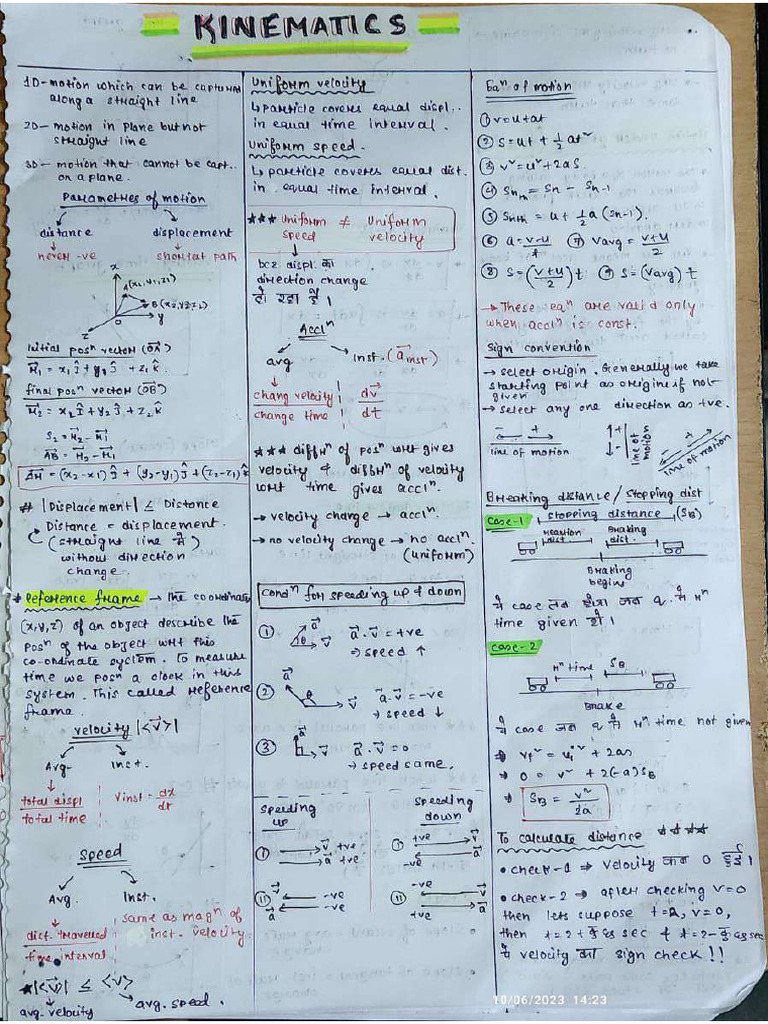 KINEMATICS
1D-motion which can be capture
along a straight line
2D- motion in plane but not
straight line
3D- motion that cannot be capt..
on a plane.
Parametres of motion
distance displacement
never -ve shortest path
x
A(x1,y1,z1)
B(x2,y2,z2)
O
y
z
Initial posⁿ vector (OA)
r1 = x1 î + y1 ĵ + z1 k̂
final posⁿ vector (OB)
r2 = x2 î + y2 ĵ + z2 k̂
S2 = r2 - r1
AB = r2 - r1
Δr = (x2-x1) î + (y2-y1) ĵ + (z2-z1) k̂
# |Displacement| ≤ Distance
Distance = displacement.
(straight line में)
without direction
change.
* Reference frame → The coordinate
(x,y,z) of an object describe the
posⁿ of the object wrt this
co-ordinate system. To measure
time we posⁿ a clock in this
system. This called reference
frame.
velocity |<v>|
Avg. Inst.
total displ
total time
Vinst = dx
dt
Speed
Avg. Inst.
dist. travelled
time interval
same as magⁿ of
inst. velocity
*|<v>| ≤ <v>
avg. velocity avg. speed.
Uniform velocity
↳ particle covers equal displ..
in equal time interval.
Uniform speed.
↳ particle covers equal dist.
in equal time interval.
*** Uniform speed ≠ Uniform velocity
bcz displ. का
direction change
हो रहा है।
Acclⁿ
avg inst. (a inst)
chang velocity
change time
dv
dt
*** diffrⁿ of posⁿ wrt gives
velocity & diffrⁿ of velocity
wrt time gives acclⁿ.
→ velocity change → acclⁿ.
→ no velocity change → no acclⁿ.
(uniform)
Condⁿ for speeding up & down
① a θ v a·v = +ve
⇒ speed ↑
② a θ v a·v = -ve
→ speed ↓
③ a v a·v = 0
→ speed same.
Speeding
up
① v +ve
a +ve
② v -ve
a -ve
Speeding
down
① +ve v
-ve a
② -ve v
+ve a
Eqⁿ of motion
① v = u + at
② S = ut + ½ at²
③ v² = u² + 2aS
④ Snth = Sn - Sn-1
⑤ Snth = u + ½ a (2n-1).
⑥ a = v-u/t ⑦ Vavg = v+u/2
⑧ S = (v+u/2) t ⑨ S = (Vavg) t
→ These eqⁿ are valid only
when acclⁿ is const.
Sign convention
→ select origin. Generally we take
starting point as origine if not-
given
→ select any one direction as +ve.
- +
line of motion
+
-
line of motion
- +
line of motion
Breaking distance / Stopping dist
Case-1 stopping distance (SB)
reaction dist. Braking dist.
Braking
begins
ये case तब होगा जब q. में rⁿ
time given हो।
Case-2
rⁿ time SB
Brake
ये case जब q में rⁿ time not given
⇒ vf² = ui² + 2as
⇒ 0 = v² + 2(-a)SB
⇒ SB = v²
2a
To calculate distance ****
• check-1 ⇒ velocity कब 0 हुई।
• check-2 ⇒ after checking v=0
then lets suppose t=2, v=0,
then t=2+ कुछ sec & t=2- कुछ sec
में velocity का sign check!!
10/06/2023 14:23